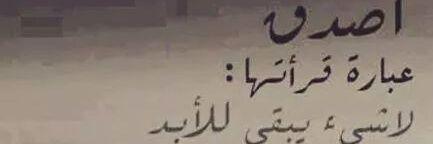 أصدق
عبارة قرأتها:
لاشيء يبقى للأبد